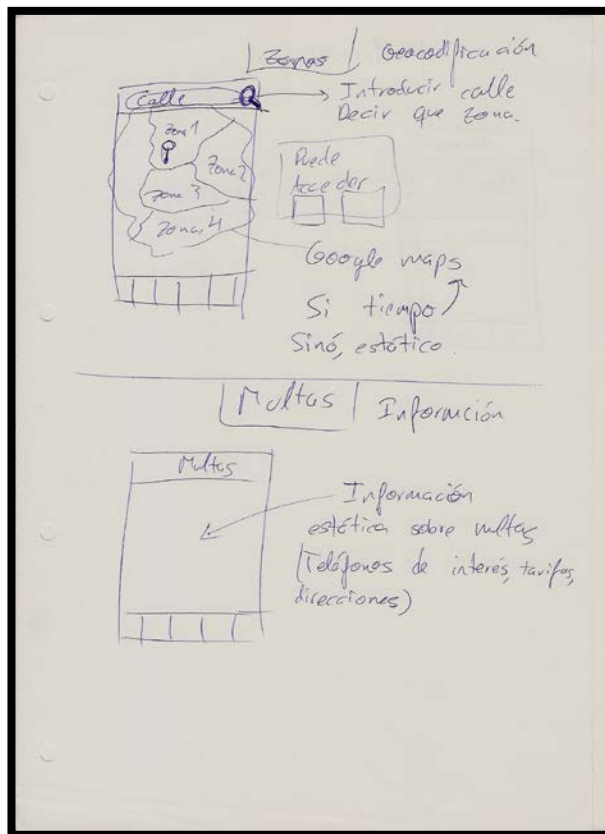 Zonas Geocodificación
Calle
Introducir calle
Decir que zona.
Zona 1
Zona 2
Zona 3
Zona 4
Puede
Acceder
Google maps
Si tiempo
Sinó, estático.
Multas Información
Multas
Información
estática sobre multas
(Teléfonos de interés, tarifas,
direcciones)